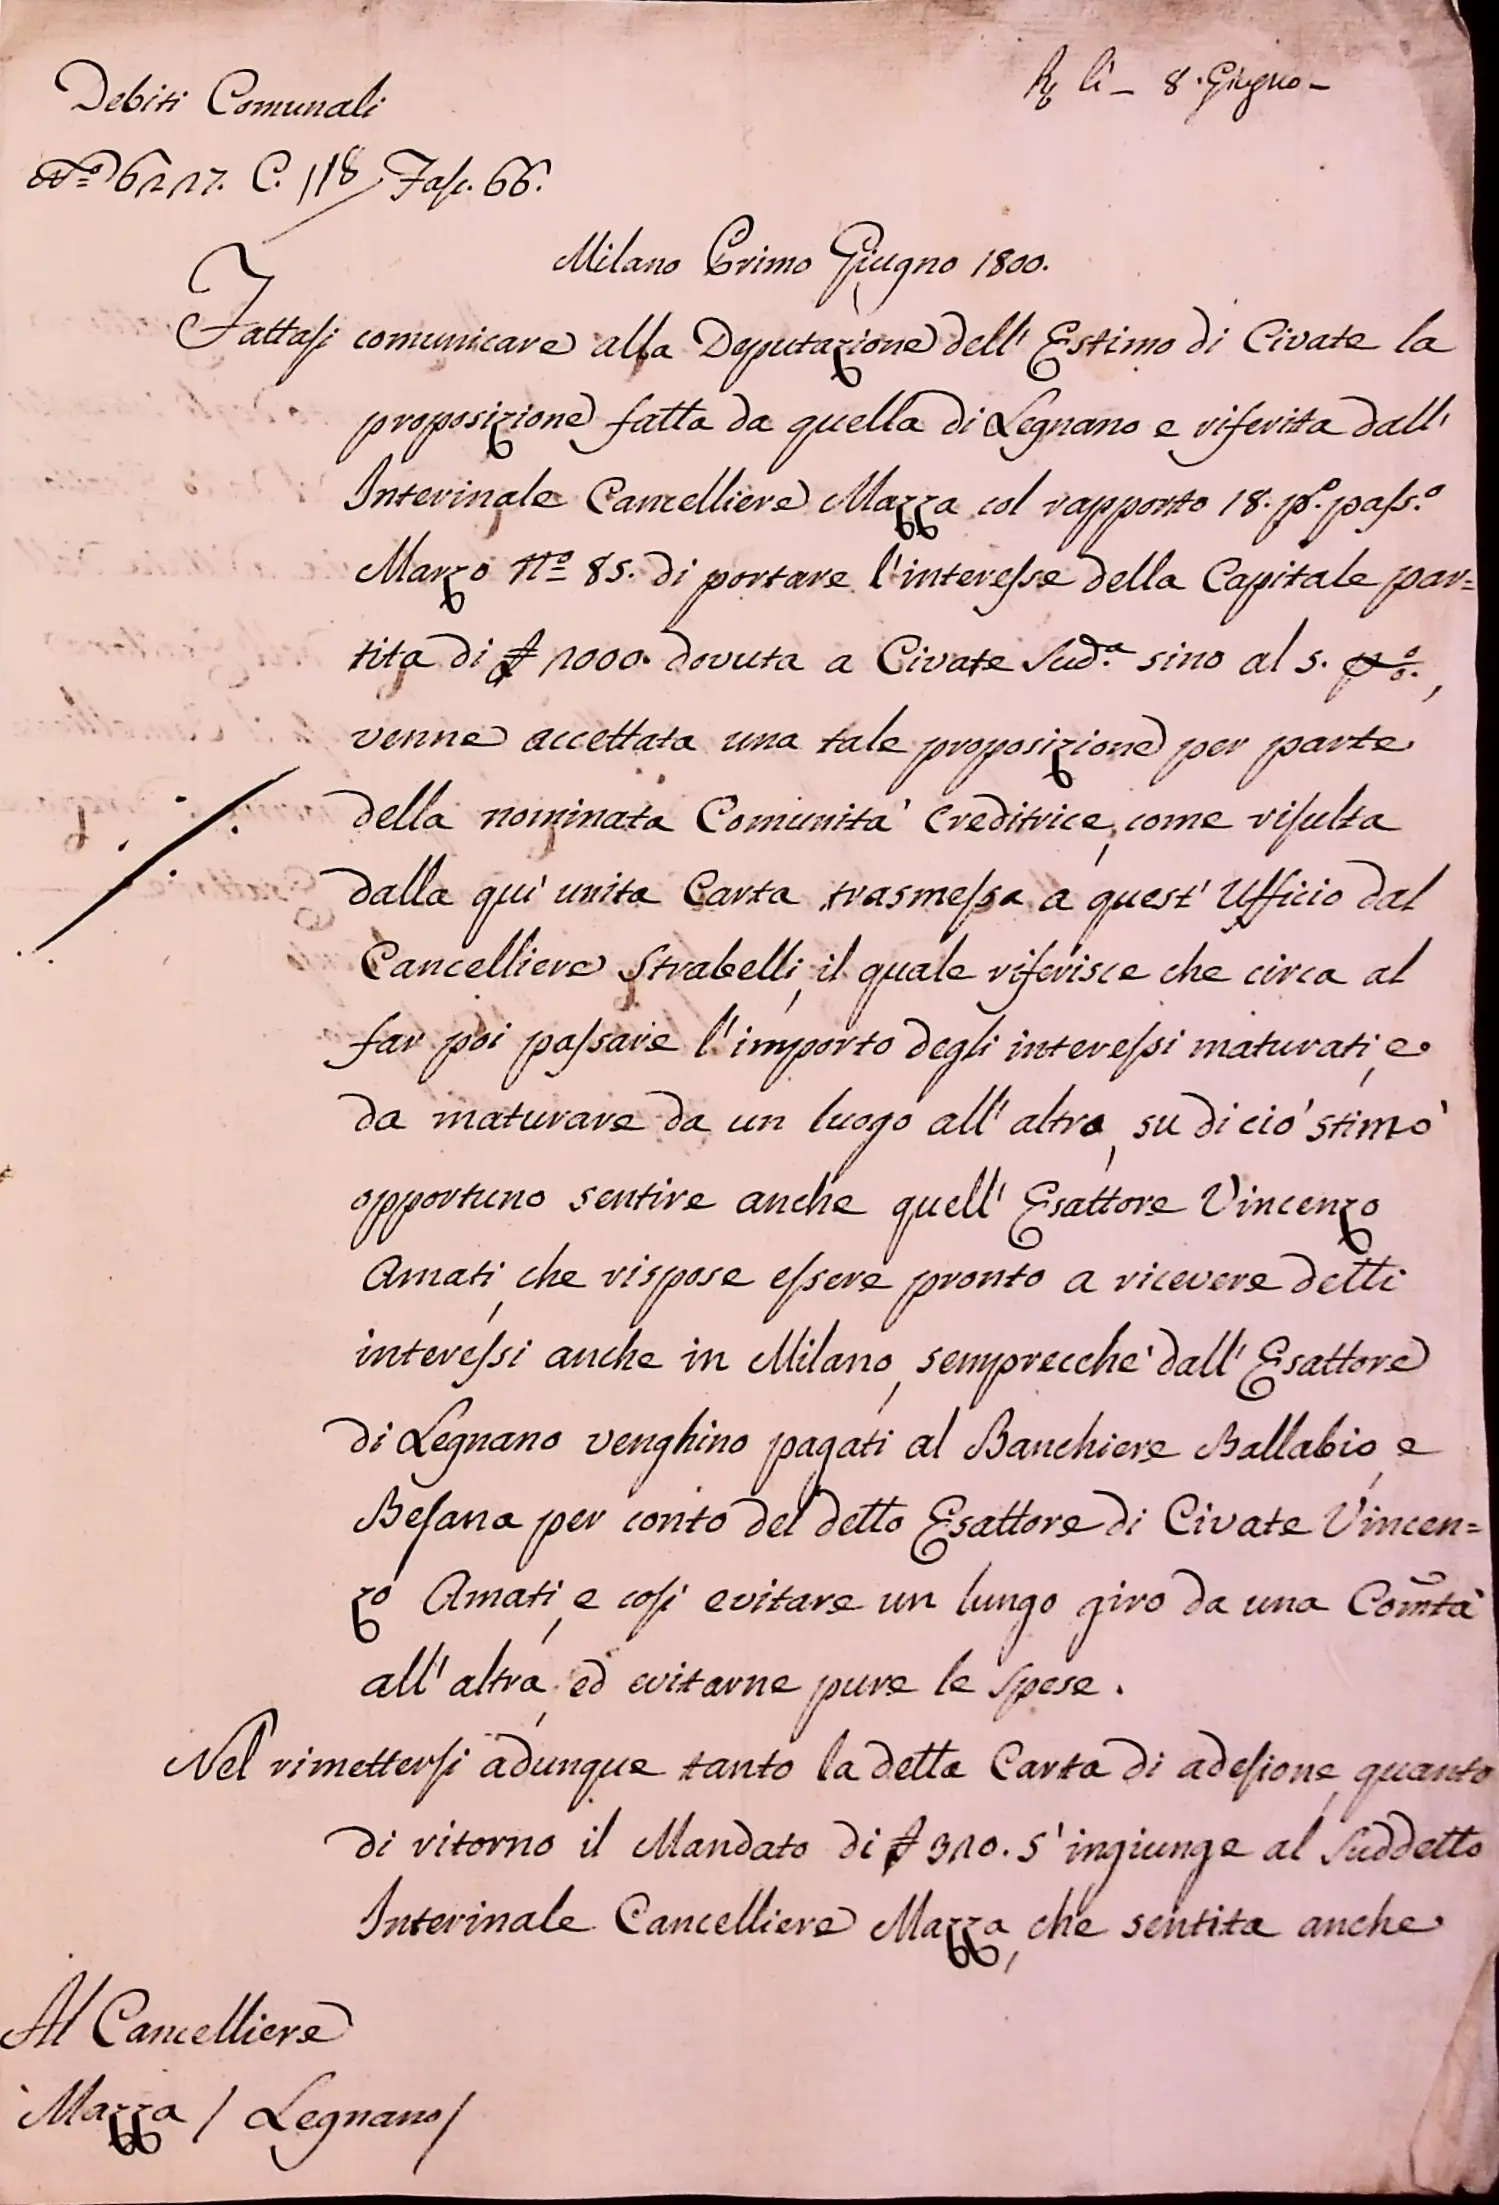 Debiti Comunali
R. li - 8. Giugno -
N.º 6227. C. 118 Fasc. 66.
Milano Primo Giugno 1800.
Fattasi comunicare alla Deputazione dell' Estimo di Civate la
proposizione fatta da quella di Legnano e riferita dall'
Interinale Cancelliere Mazza col rapporto 18. p.º pass.º
Marzo N.º 85. di portare l'interesse della Capitale par=
tita di £ 2000. dovuta a Civate sud.ª sino al 5. p%.,
venne accettata una tale proposizione per parte
della nominata Comunita' Creditrice, come risulta
dalla qui' unita Carta trasmessa a quest' Ufficio dal
Cancelliere Strabelli, il quale riferisce che circa al
far poi passare l'importo degli interessi maturati, e
da maturare da un luogo all' altro, su di ciò stimò
opportuno sentire anche quell' Esattore Vincenzo
Amati, che rispose essere pronto a ricevere detti
interessi anche in Milano, semprecche' dall' Esattore
di Legnano venghino pagati al Banchiere Ballabio, e
Besana per conto del detto Esattore di Civate Vincen=
zo Amati, e così evitare un lungo giro da una Com̃ta'
all' altra, ed evitarne pure le spese.
Nel rimettersi adunque tanto la detta Carta di adesione, quanto
di ritorno il Mandato di £ 320. s'ingiunge al suddetto
Interinale Cancelliere Mazza, che sentita anche
Al Cancelliere
Mazza / Legnano /